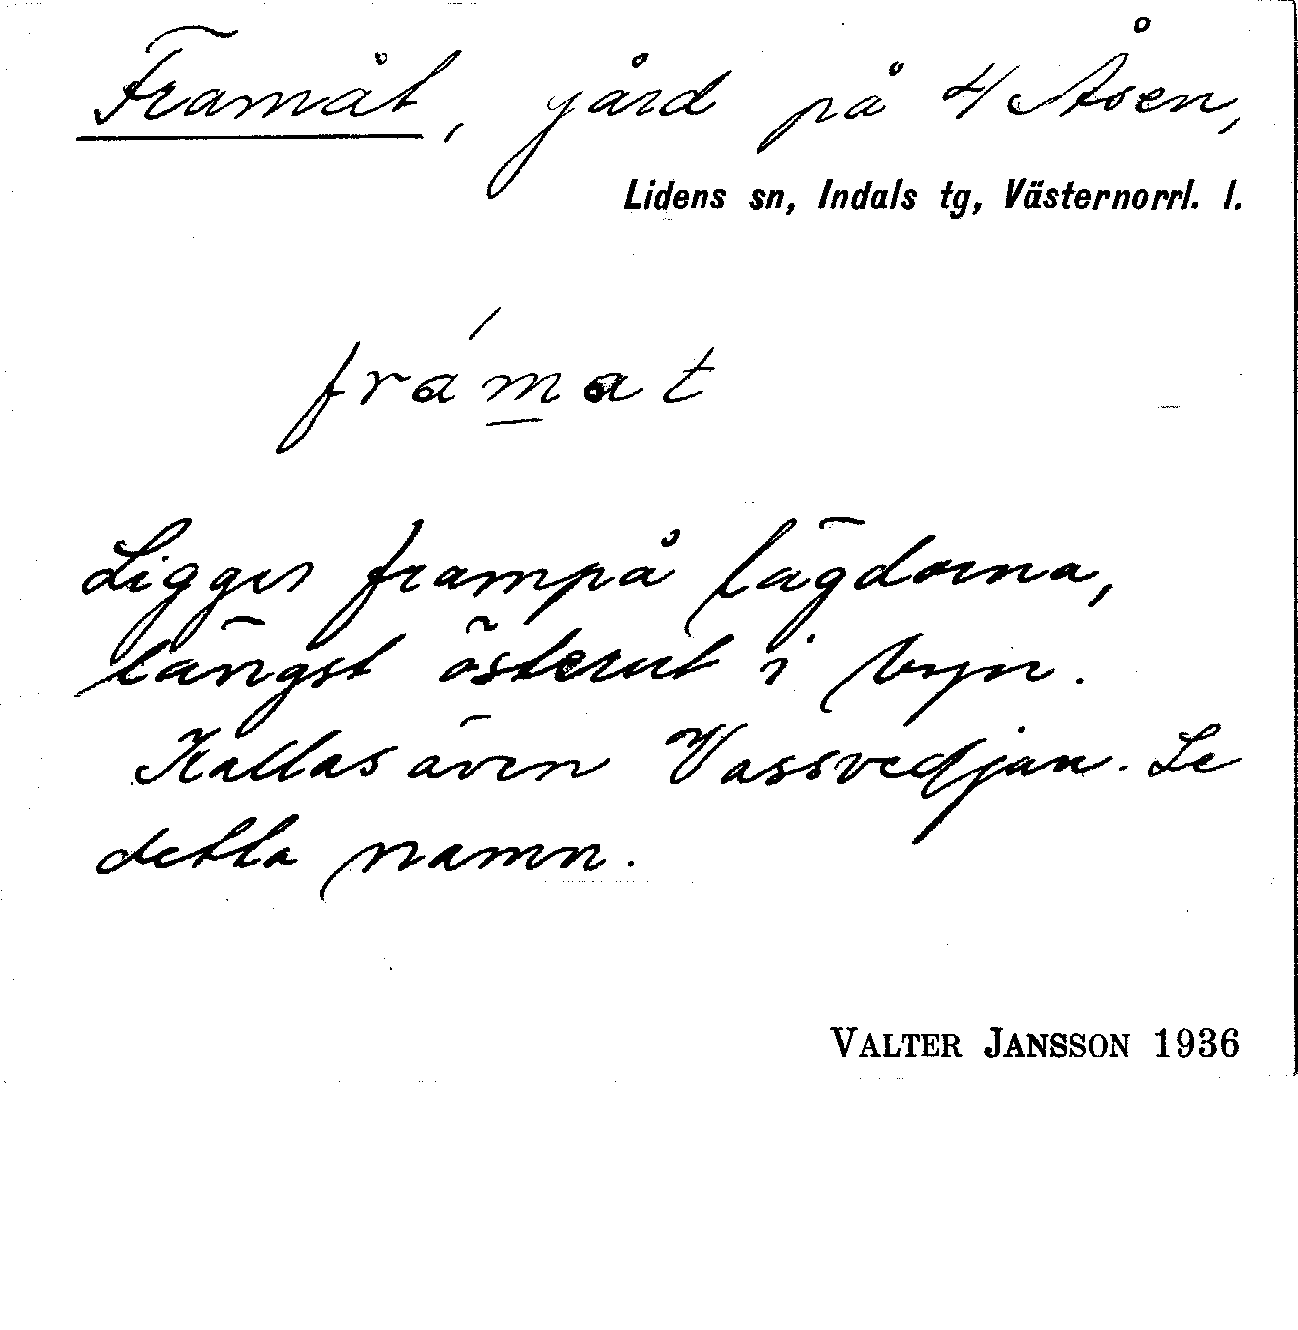 Framåt, gård på 4 Åsen,
Lidens sn, Indals tg, Västernorrl. l.
frámat
Ligger frampå lägdorna,
längst österut i byn.
Kallas även Vassvedjan. Se
detta namn.
VALTER JANSSON 1936